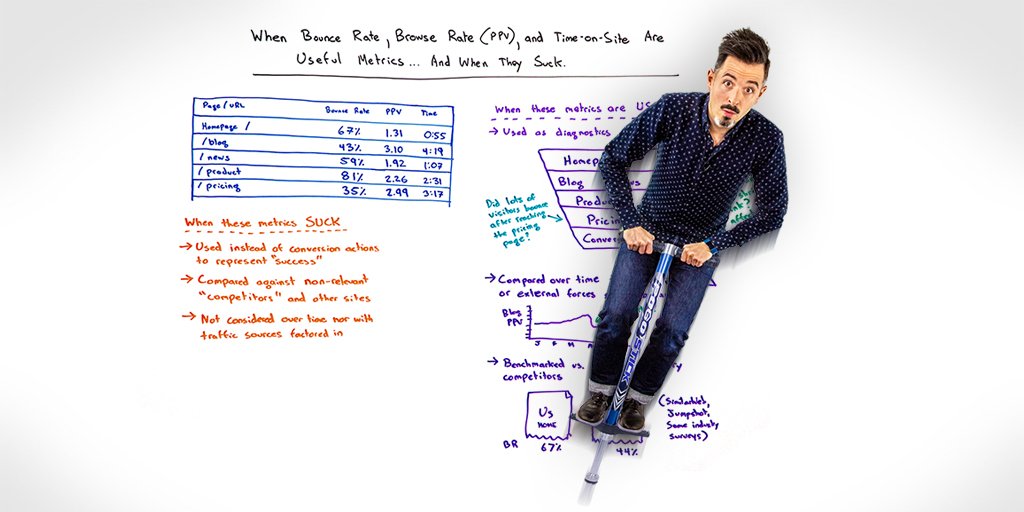 When Bounce Rate, Browse Rate (PPV), and Time-on-Site Are
Useful Metrics... And When They Suck.
Page/URL Bounce Rate PPV Time
Homepage / 67% 1.31 0:55
/blog 43% 3.10 4:19
/news 59% 1.92 1:07
/product 81% 2.26 2:31
/pricing 35% 2.99 3:17
When these metrics SUCK
→ Used instead of conversion actions
to represent "success"
→ Compared against non-relevant
"competitors" and other sites
→ Not considered over time nor with
traffic sources factored in
When these metrics are
→ Used as diagnostics
Blog
Did lots of
visitors bounce
after reaching
the pricing
page?
→ Compared over time
or external forces
Blog
PPV
J F M
→ Benchmarked vs.
competitors
Us
HOME
BR 67% 44%
(SimilarWeb,
Jumpshot,
Some industry
surveys)
POGO STICK